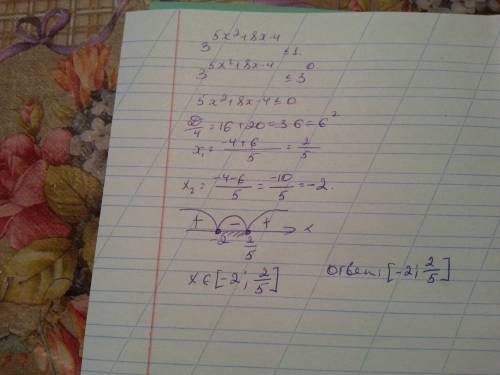 3^(5x²+8x-4) ≤ 1
3^(5x²+8x-4) ≤ 3^0
5x²+8x-4 ≤ 0
D/4 = 16+20=36=6²
x₁ = (-4+6)/5 = 2/5
x₂ = (-4-6)/5 = -10/5 = -2.
+ - + x
-2 2/5
x ∈ [-2; 2/5]
Ответ: [-2; 2/5]